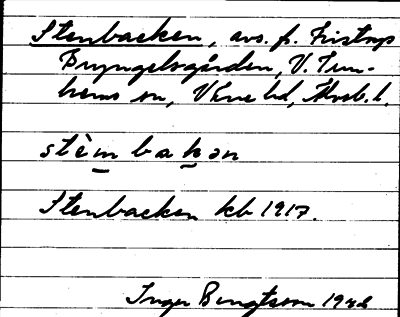 Stenbacken, avs. fr. Tristorp
Bryngelsgården, V. Tun-
hems sn, Väne hd, Älvsb. l.
stèm bakən
Stenbacken kb 1917.
Inger Bengtsson 1942